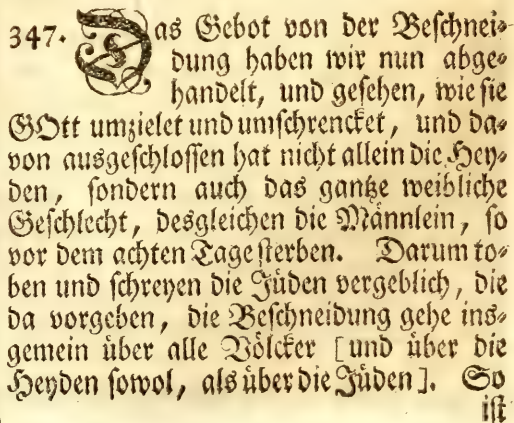 347. Das Gebot von der Beschnei-
dung haben wir nun abge-
handelt, und gesehen, wie sie
GOtt umzielet und umschrencket, und da-
von ausgeschlossen hat nicht allein die Hey-
den, sondern auch das gantze weibliche
Geschlecht, desgleichen die Männlein, so
vor dem achten Tage sterben. Darum to-
ben und schreyen die Jüden vergeblich, die
da vorgeben, die Beschneidung gehe ins-
gemein über alle Völcker [und über die
Heyden sowol, als über die Jüden]. So
ist